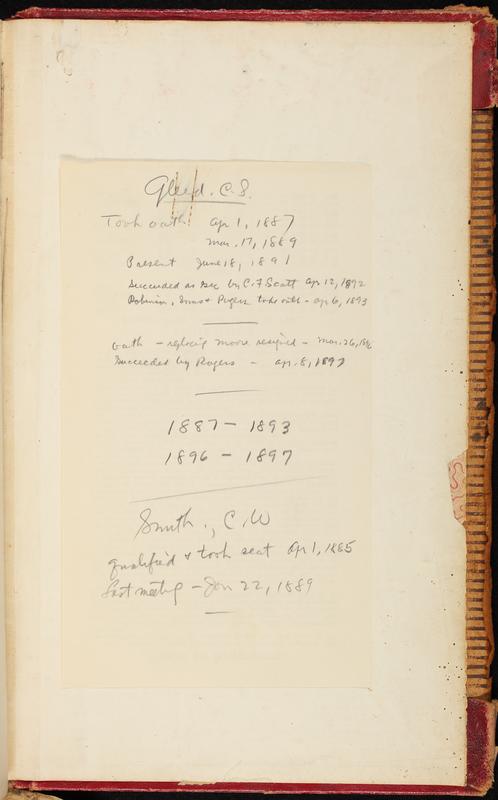 Gleed, C.S.
Took oath Apr 1, 1887
Mar. 17, 1889
Present June 18, 1891
Succeeded as sec by C.F. Scott Apr 12, 1892
Robinson, & Rogers took oath - Apr 6, 1893
Oath - replacing Moore resigned - Mar. 26, 1896
Succeeded by Rogers - Apr. 8, 1897
1887 - 1893
1896 - 1897
Smith, C.W
qualified & took seat Apr 1, 1885
last meeting - Jan 22, 1889